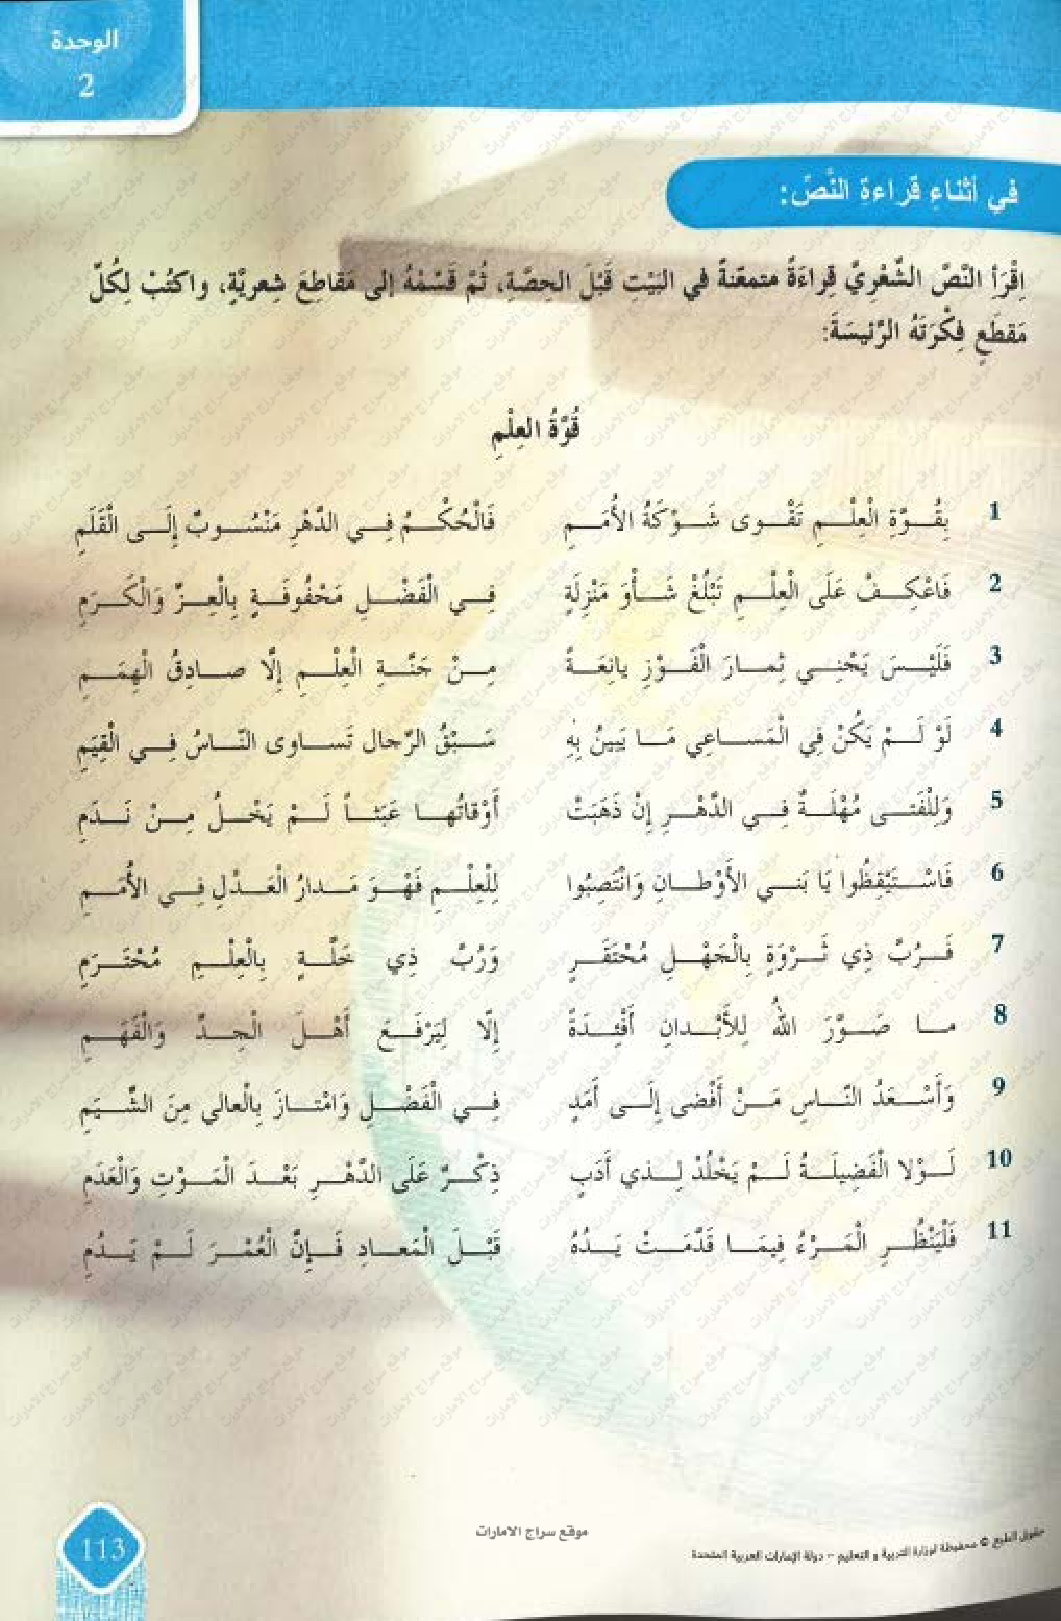 الوحدة
2
في أثناءِ قراءةِ النَّصِّ:
اِقْرَأِ النَّصَّ الشِّعْرِيَّ قِراءَةً متمعّنةً في البَيْتِ قَبْلَ الحِصَّةِ، ثُمَّ قَسِّمْهُ إلى مَقاطِعَ شِعريَّةٍ، واكتُبْ لِكُلِّ
مَقطَعٍ فِكْرَتَهُ الرَّئيسَةَ:
قُوَّةُ العِلْمِ
1 بِقُوَّةِ الْعِلْمِ تَقْوى شَوْكَةُ الأُمَمِ فَالْحُكْمُ فِي الدَّهْرِ مَنْسُوبٌ إِلَى الْقَلَمِ
2 فَاعْكِفْ عَلَى الْعِلْمِ تَبْلُغْ شَأْوَ مَنْزِلَةٍ فِي الْفَضْلِ مَحْفُوفَةٍ بِالْعِزِّ وَالْكَرَمِ
3 فَلَيْسَ يَجْنِي ثِمارَ الْفَوْزِ يانِعَةً مِنْ جَنَّةِ الْعِلْمِ إِلَّا صادِقُ الْهِمَمِ
4 لَوْ لَمْ يَكُنْ فِي الْمَساعِي مَا يَبِينُ بِهِ سَبْقُ الرِّجال تَساوى النّاسُ فِي الْقِيَمِ
5 وَلِلْفَتى مُهْلَةٌ فِي الدَّهْرِ إِنْ ذَهَبَتْ أَوْقاتُها عَبَثاً لَمْ يَخْلُ مِنْ نَدَمِ
6 فَاسْتَيْقِظُوا يَا بَني الأَوْطانِ وَانْتَصِبُوا لِلْعِلْمِ فَهْوَ مَدارُ الْعَدْلِ فِي الأُمَمِ
7 فَرُبَّ ذِي ثَرْوَةٍ بِالْجَهْلِ مُحْتَقَرٍ وَرُبَّ ذِي خَلَّةٍ بِالْعِلْمِ مُحْتَرَمِ
8 ما صَوَّرَ اللهُ لِلأَبْدانِ أَفْئِدَةً إِلّا لِيَرْفَعَ أَهْلَ الْجِدِّ وَالْفَهَمِ
9 وَأَسْعَدُ النّاسِ مَنْ أَفْضى إِلَى أَمَدٍ فِي الْفَضْلِ وَامْتازَ بِالْعالي مِنَ الشِّيَمِ
10 لَوْلا الْفَضِيلَةُ لَمْ يَخْلُدْ لِذي أَدَبٍ ذِكْرٌ عَلَى الدَّهْرِ بَعْدَ الْمَوْتِ وَالْعَدَمِ
11 فَلْيَنْظُرِ الْمَرْءُ فِيمَا قَدَّمَتْ يَدُهُ قَبْلَ الْمَعادِ فَإِنَّ الْعُمْرَ لَمْ يَدُمِ
موقع سراج الامارات
حقوق الطبع © محفوظة لوزارة التربية و التعليم - دولة الإمارات العربية المتحدة
113